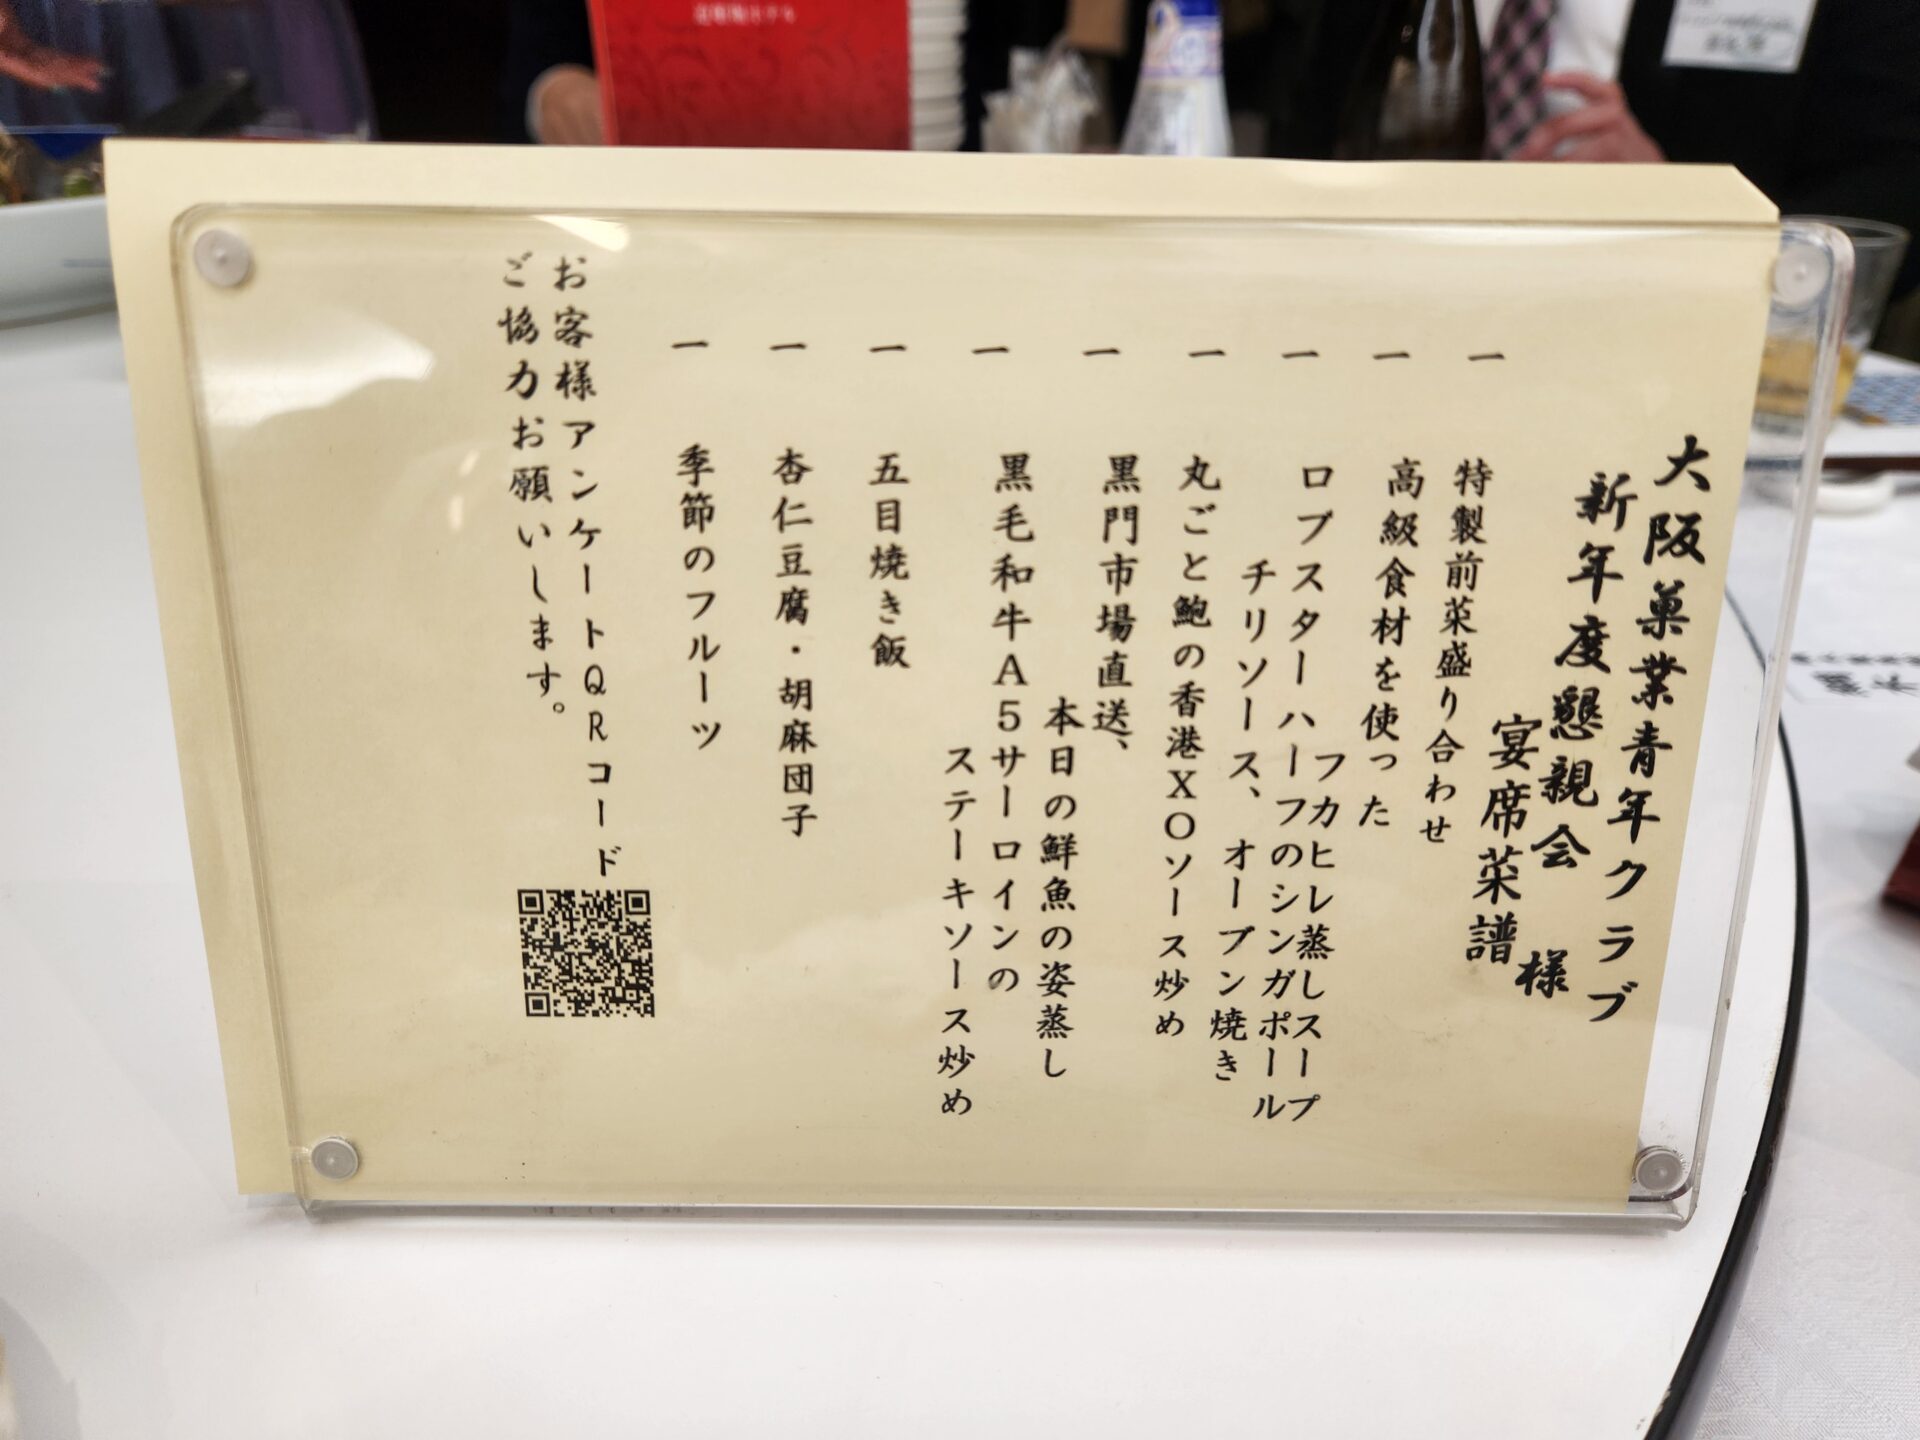 大阪菓業青年クラブ
新年度懇親会 様
宴席菜譜
一 特製前菜盛り合わせ
一 高級食材を使った
フカヒレ蒸しスープ
一 ロブスターハーフのシンガポール
チリソース、オーブン焼き
一 丸ごと鮑の香港XOソース炒め
一 黒門市場直送、
本日の鮮魚の姿蒸し
一 黒毛和牛A5サーロインの
ステーキソース炒め
一 五目焼き飯
一 杏仁豆腐・胡麻団子
一 季節のフルーツ
お客様アンケートQRコード
ご協力お願いします。